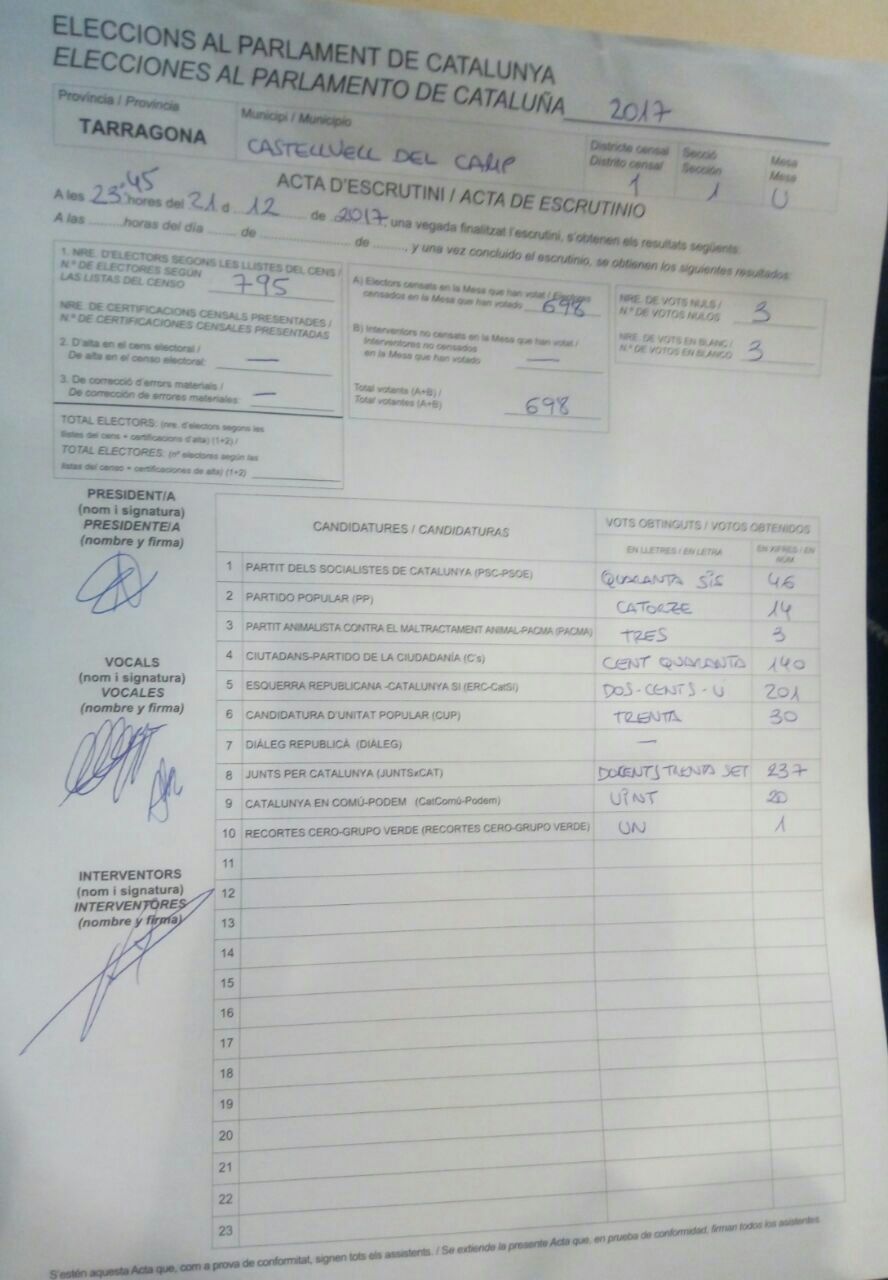 ELECCIONS AL PARLAMENT DE CATALUNYA
ELECCIONES AL PARLAMENTO DE CATALUÑA 2017
Província / Provincia
TARRAGONA
Municipi / Municipio
CASTELLVELL DEL CAMP
Districte censal
Distrito censal
1
Secció
Sección
1
Mesa
Mesa
U
ACTA D'ESCRUTINI / ACTA DE ESCRUTINIO
A les 23:45 hores del 21 d 12 de 2017, una vegada finalitzat l'escrutini, s'obtenen els resultats següents:
A las .........horas del día ....... de .......................... de ........, y una vez concluido el escrutinio, se obtienen los siguientes resultados:
1. NRE. D'ELECTORS SEGONS LES LLISTES DEL CENS /
N.º DE ELECTORES SEGÚN
LAS LISTAS DEL CENSO 795
NRE. DE CERTIFICACIONS CENSALS PRESENTADES /
N.º DE CERTIFICACIONES CENSALES PRESENTADAS
2. D'alta en el cens electoral /
De alta en el censo electoral: —
3. De correcció d'errors materials /
De corrección de errores materiales: —
TOTAL ELECTORS: (nre. d'electors segons les
llistes del cens + certificacions d'alta) (1+2) /
TOTAL ELECTORES: (nº electores según las
listas del censo + certificaciones de alta) (1+2)
A) Electors censats en la Mesa que han votat / Electores
censados en la Mesa que han votado 698
B) Interventors no censats en la Mesa que han votat /
Interventores no censados
en la Mesa que han votado —
Total votants (A+B) /
Total votantes (A+B) 698
NRE. DE VOTS NULS /
N.º DE VOTOS NULOS 3
NRE. DE VOTS EN BLANC /
N.º DE VOTOS EN BLANCO 3
PRESIDENT/A
(nom i signatura)
PRESIDENTE/A
(nombre y firma)
VOCALS
(nom i signatura)
VOCALES
(nombre y firma)
INTERVENTORS
(nom i signatura)
INTERVENTORES
(nombre y firma)
CANDIDATURES / CANDIDATURAS
VOTS OBTINGUTS / VOTOS OBTENIDOS
EN LLETRES / EN LETRA
EN XIFRES / EN NÚM.
1 PARTIT DELS SOCIALISTES DE CATALUNYA (PSC-PSOE) QUARANTA SIS 46
2 PARTIDO POPULAR (PP) CATORZE 14
3 PARTIT ANIMALISTA CONTRA EL MALTRACTAMENT ANIMAL-PACMA (PACMA) TRES 3
4 CIUTADANS-PARTIDO DE LA CIUDADANÍA (C's) CENT QUARANTA 140
5 ESQUERRA REPUBLICANA -CATALUNYA SI (ERC-CatSí) DOS-CENTS-U 201
6 CANDIDATURA D'UNITAT POPULAR (CUP) TRENTA 30
7 DIÀLEG REPUBLICÀ (DIÀLEG) —
8 JUNTS PER CATALUNYA (JUNTSxCAT) DOCENTS TRENTA SET 237
9 CATALUNYA EN COMÚ-PODEM (CatComú-Podem) VINT 20
10 RECORTES CERO-GRUPO VERDE (RECORTES CERO-GRUPO VERDE) UN 1
11
12
13
14
15
16
17
18
19
20
21
22
23
S'estén aquesta Acta que, com a prova de conformitat, signen tots els assistents. / Se extiende la presente Acta que, en prueba de conformidad, firman todos los asistentes.